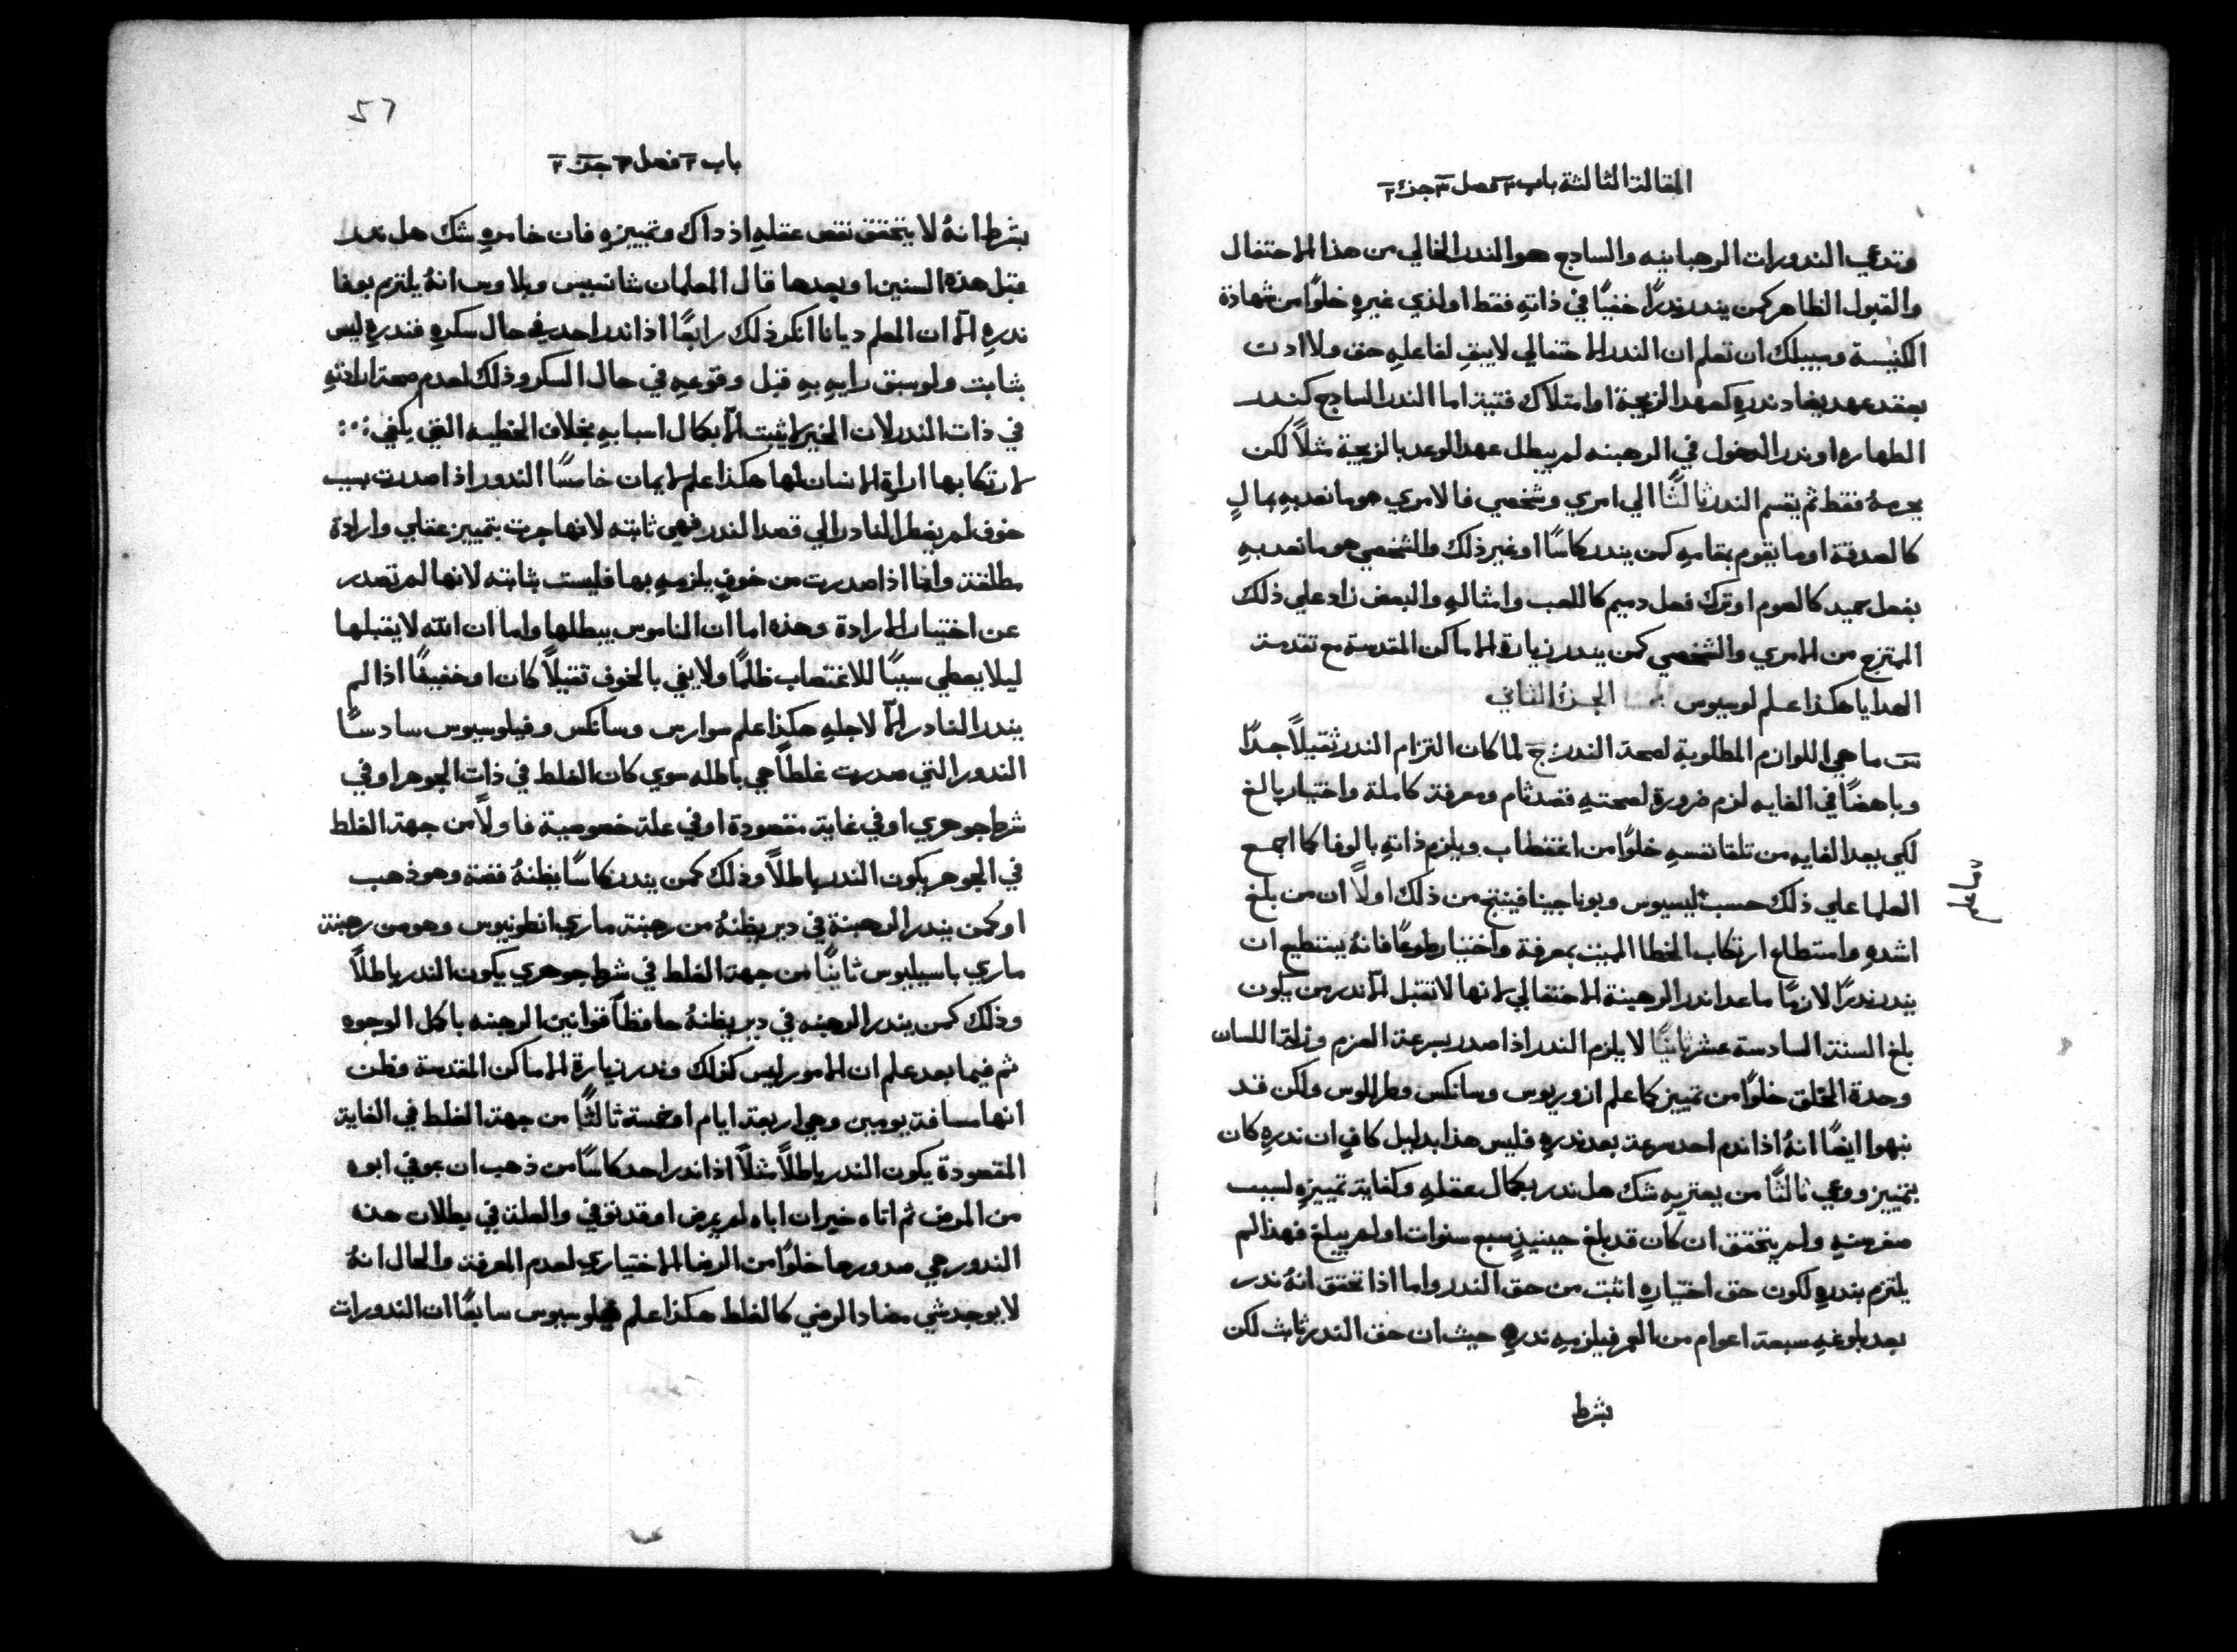 المقالة الثالثة باب ٣ فصل ٣ جزء ٢
وتدعي الندورات الرهبانيه والسادج هو الندر الخالي من هذا الاحتفال
والقبول الظاهر كمن يندر ندرًا خفيًا في ذاتهِ فقط او لذي غيرهِ خلوًا من شهادة
الكنيسة وسبيلك ان تعلم ان الندر الاحتفالي لا يبقي لفاعلهِ حق ولا ادت
بعقد عهد يضاد ندرهِ كعهد الزيجة او امتلاك قتية اما الندر السادج كندر
الطهاره او ندر الدخول في الرهبنه لم يبطل عهد الوعد بالزيجة مثلاً لكن
يحرمهُ فقط ثم يقسم الندر ثالثًا الي امري وشخصي فالامري هو ما نعد بهِ بمالٍ
كالصدقة او ما يقوم بمقامهِ كمن يندر كاسًا او غير ذلك والشخصي هو ما نعد بهِ
بفعل حميد كالصوم او ترك فعل دميم كاللعب وامثالهِ والبعض زاد علي ذلك
الممتزج من الامري والشخصي كمن يندر زيارة الاماكن المقدسة مع تقدمة
الهدايا هكذا علم لوسيوس الجزءُ الثاني
س ما هي اللوازم المطلوبة لصحة الندر ج لما كان التزام الندر ثقيلاً جدًا
وباهضًا في الغايه لزم ضرورة لصحتهِ قصد تام ومعرفة كاملة واختيار بالغ
لكي يعد الغايه من تلقا نفسهِ خلوًا من اغتطاب ويلزم ذاتهِ بالوفا كما اجمع
العلما علي ذلك حسب ليسيوس وبوناجينا فينتج من ذلك اولاً ان من بلغ
اشدهِ واستطاع ارتكاب الخطا المميت بمعرفة واختيار طوعًا فانهُ يستطيع ان
يندر ندرًا لازمًا ما عدا ندر الرهبنة الاحتفالي لانها لا تقبل الا ندر من يكون
بلغ السنة السادسة عشر ثانيًا لا يلزم الندر اذا صدر بسرعة العزم وزلة اللسان
وحدة الخلق خلوًا من تمييز كما علم ازوريوس وسانكس وطرللوس ولكن قد
نبهوا ايضًا انهُ اذا ندم احد سرعة بعد ندرهِ فليس هذا بدليل كافٍ ان ندرهِ كان
بتمييز ووعي ثالثًا من يعتريهِ شك هل ندر بكمال عقلهِ وكفاية تمييزهِ لسبب
صغر سنهِ ولم يتحقق ان كان قد بلغ حينيذٍ سبع سنوات او لم يبلغ فهذا لم
يلتزم بندرهِ لكون حق اختيارهِ اثبت من حق الندر واما اذا تحقق انهُ ندر
بعد بلوغهِ سبعة اعوام من العمر فيلزمهِ ندرهِ حيث ان حق الندر ثابت لكن
بشرط
باب ٣ فصل ٣ جزء ٢
بشرط انهُ لا يتحقق نقص عقلهِ اذ داك وتمييزهِ فان خامرهِ شك هل ندر
قبل هذه السنين او بعدها قال المعلمان شانسيس وبلاوس انهُ يلتزم بوفا
ندرهِ الا ان المعلم ديانا انكر ذلك رابعًا اذا ندر احد في حال سكرهِ فندرهِ ليس
بثابت ولو سبق رايهِ بهِ قبل وقوعهِ في حال السكر وذلك لعدم صحة ارادتهِ
في ذات الندر لان الخير لا يثبت الا بكمال اسبابهِ بخلاف الخطيه التي يكفي
لارتكابها ارادة الانسان لها هكذا علم لايمان خامسًا الندور اذا صدرت بسبب
خوف لم يضطر النادر الي قصد الندر فهي ثابته لانها جرت بتمييز عقلي وارادة
مطلقة وانما اذا صدرت من خوفٍ يلزمهِ بها فليست بثابته لانها لم تصدر
عن اختيار الارادة وهذه اما ان الناموس يبطلها واما ان الله لا يقبلها
ليلا يعطي سببًا للاغتصاب ظلمًا ولا يفي بالخوف تقيلاً كان او خفيفًا اذا لم
يندر النادر الا لاجلهِ هكذا علم سوارس وسانكس وفيلوسيوس سادسًا
الندور التي صدرت غلطًا هي باطله سوي كان الغلط في ذات الجوهر او في
شرط جوهري او في غاية مقصودة او في علة خصوصية فاولاً من جهة الغلط
في الجوهر يكون الندر باطلاً وذلك كمن يندر كاسًا يظنهُ فضة وهو ذهب
او كمن يندر الرهبنة في دير يظنهُ من رهبنة ماري انطونيوس وهو من رهبنة
ماري باسيليوس ثانيًا من جهة الغلط في شرط جوهري يكون الندر باطلاً
وذلك كمن يندر الرهبنه في دير يظنهُ حافظًا قوانين الرهبنه باكمل الوجوه
ثم فيما بعد علم ان الامور ليس كذلك وندر زيارة الاماكن المقدسة وظن
انها مسافة يومين وهي اربعة ايام او خمسة ثالثًا من جهة الغلط في الغاية
المقصودة يكون الندر باطلاً مثلاً اذا ندر احد كاسًا من ذهب ان عوفي ابوه
من المرض ثم اتاه خبر ان اباه لم يمرض او قد توفي والعلة في بطلان هذه
الندور هي صدورها خلوًا من الرضا الاختياري لعدم المعرفة والحال انهُ
لا يوجد شي مضاد الرضي كالغلط هكذا علم فيلوسيوس سابعًا ان الندورات